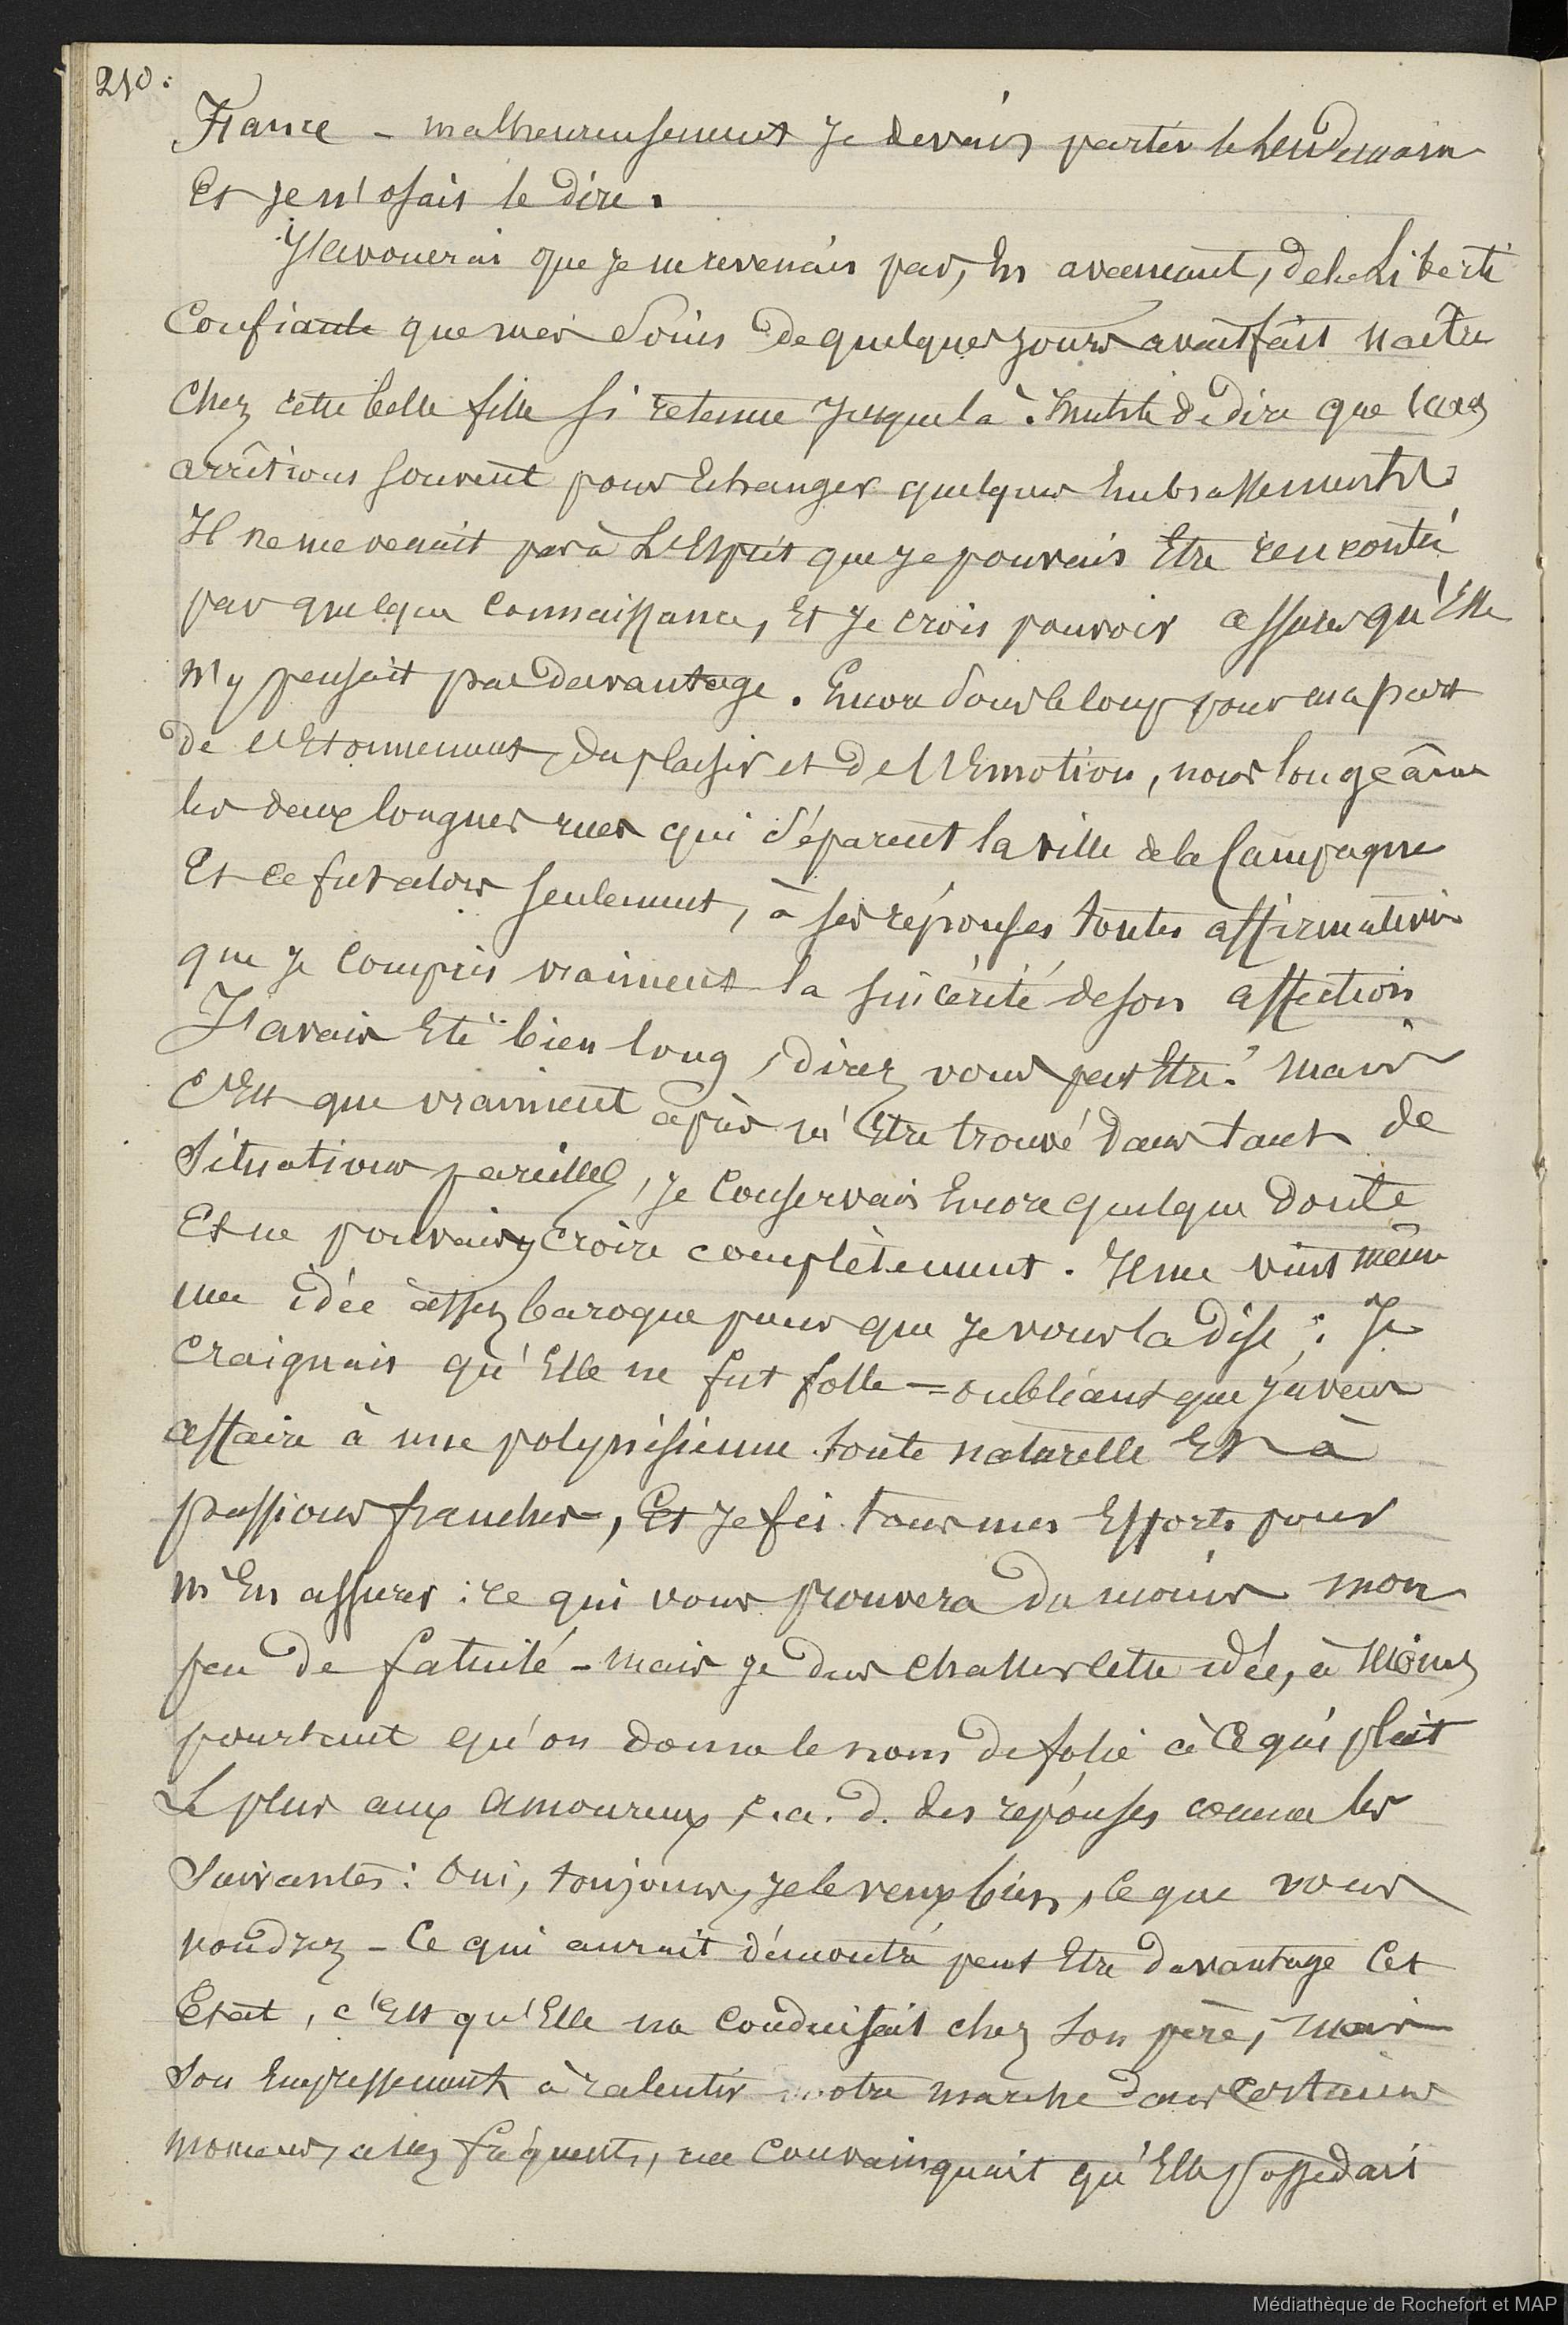 210:
France - malheureusement Je devais partir le lendemain
Et je n'osais le dire.
J'avouerai que je ne revenais pas, En avançant, de la Liberté
Confiante que mes Soins de quelques jours avait fait naître
Chez cette belle fille si retenue jusque là. Inutile de dire que nous
arrêtions souvent pour Echanger quelques Embrassements
Il ne me venait pas à L'Esprit que je pouvais Etre rencontré
par quelque Connaissance, Et je crois pouvoir assurer qu'Elle
N'y pensait pas davantage. Encore sous le coup pour ma part
de l'Etonnement, du plaisir et de l'Emotion, nous longeâmes
les deux longues rues qui séparent la ville de la Campagne
Et ce fut alors seulement, à ses réponses toutes affirmatives
que je Compris vraiment la sincérité de son affection
J'avais Eté bien long, direz vous peut Etre. Mais
C'Est que vraiment après m'Etre trouvé dans tant de
Situations pareilles, je Conservais Encore quelque Doute
Et ne pouvais y Croire complètement. Il me vint même
une idée assez baroque pour que je vous la dise : Je
Craignais qu'Elle ne fut folle = oubliant que j'avais
affaire à une polynésienne toute naturelle Et à
passions franches, Et je fis tous mes Efforts pour
m'En assurer : ce qui vous prouvera du moins mon
peu de fatuité - Mais je dus chasser cette idée, à Moins
pourtant qu'on donna le nom de folie à Ce qui plait
Le plus aux Amoureux, c.a.d. des réponses comme les
Suivantes : Oui, toujours, je le veux bien, ce que vous
voudrez - Ce qui aurait démontré peut Etre davantage Cet
Etat, c'Est qu'Elle me Conduisait chez son père, Mais
Son Empressement à ralentir notre marche dans Certains
Moments, assez fréquents, me Convainquait qu'Elle possédait
Médiathèque de Rochefort et MAP